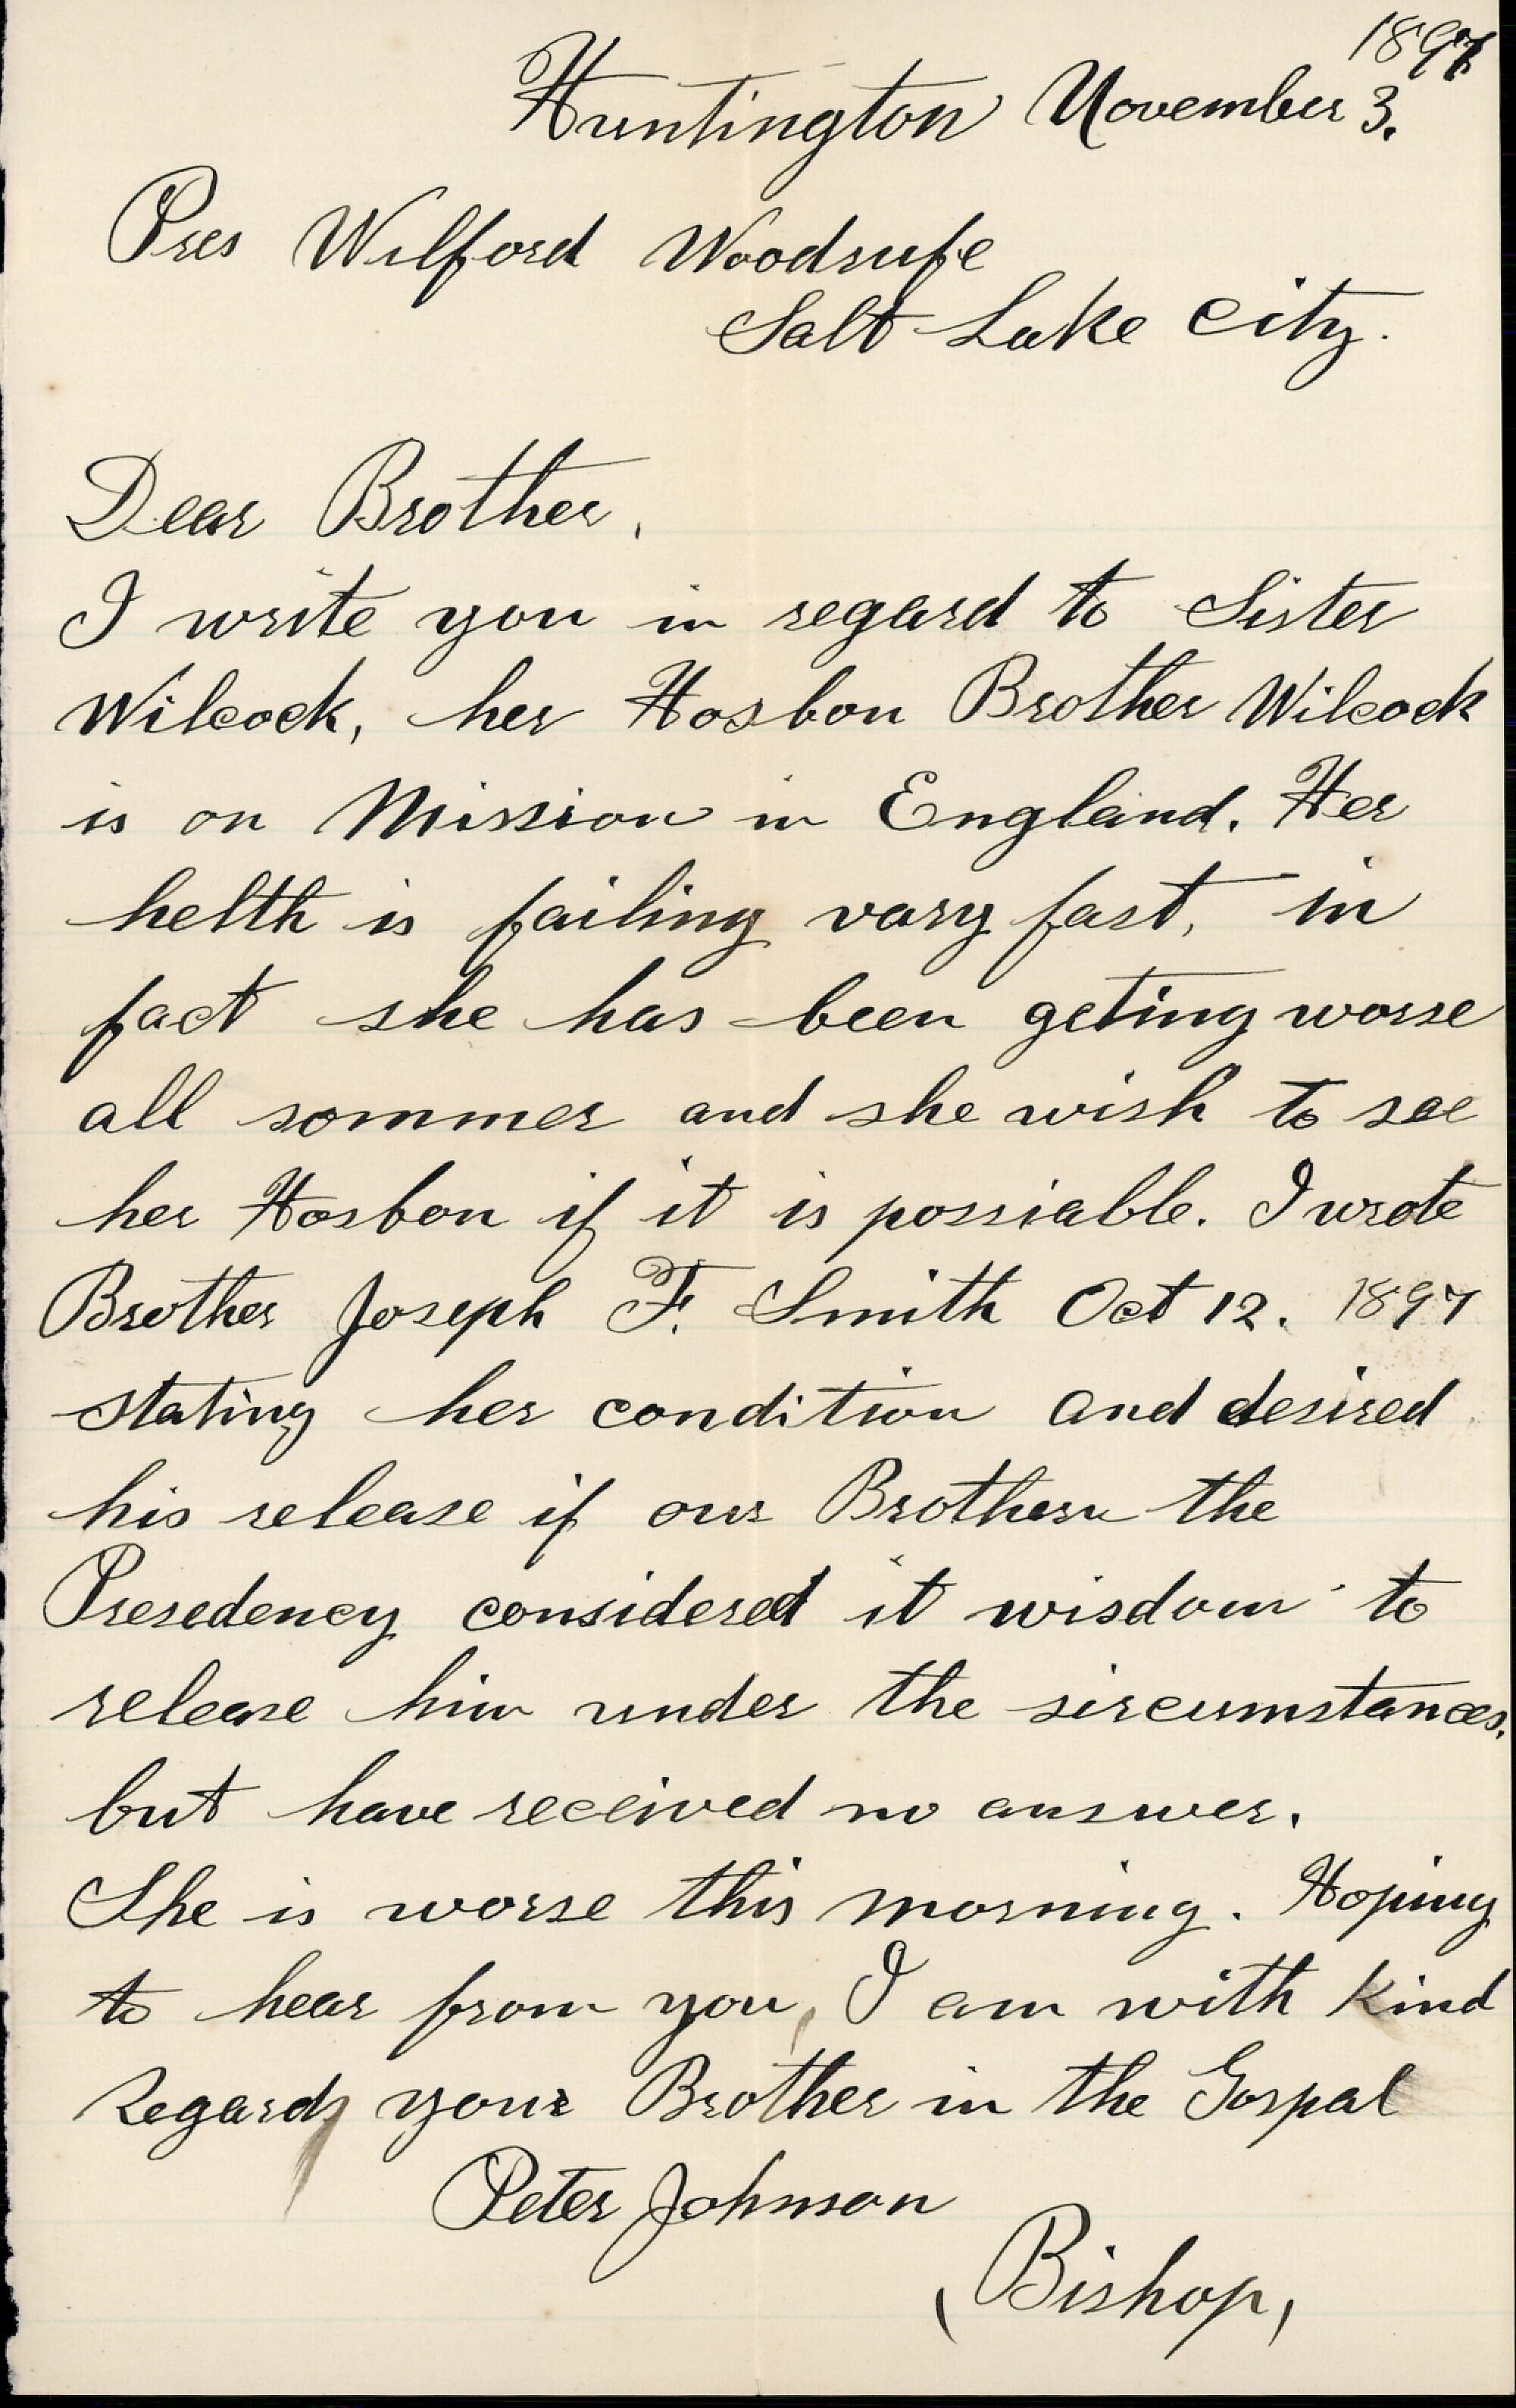 1897
Huntington November 3.
Pres Wilford Woodrufe
Salt Lake City.
Dear Brother,
I write you in regard to Sister
Wilcock, her Hosbon Brother Wilcock
is on Mission in England. Her
helth is failing vary fast, in
fact she has been geting worse
all sommer and she wish to see
her Hosbon if it is possiable. I wrote
Brother Joseph F. Smith Oct 12. 1897
stating her condition and desired
his release if our Brothern the
Presedency considered it wisdom to
release him under the sircumstances.
but have received no answer.
She is worse this morning. Hoping
to hear from you, I am with Kind
Regards your Brother in the Gospal
Peter Johnson
(Bishop)